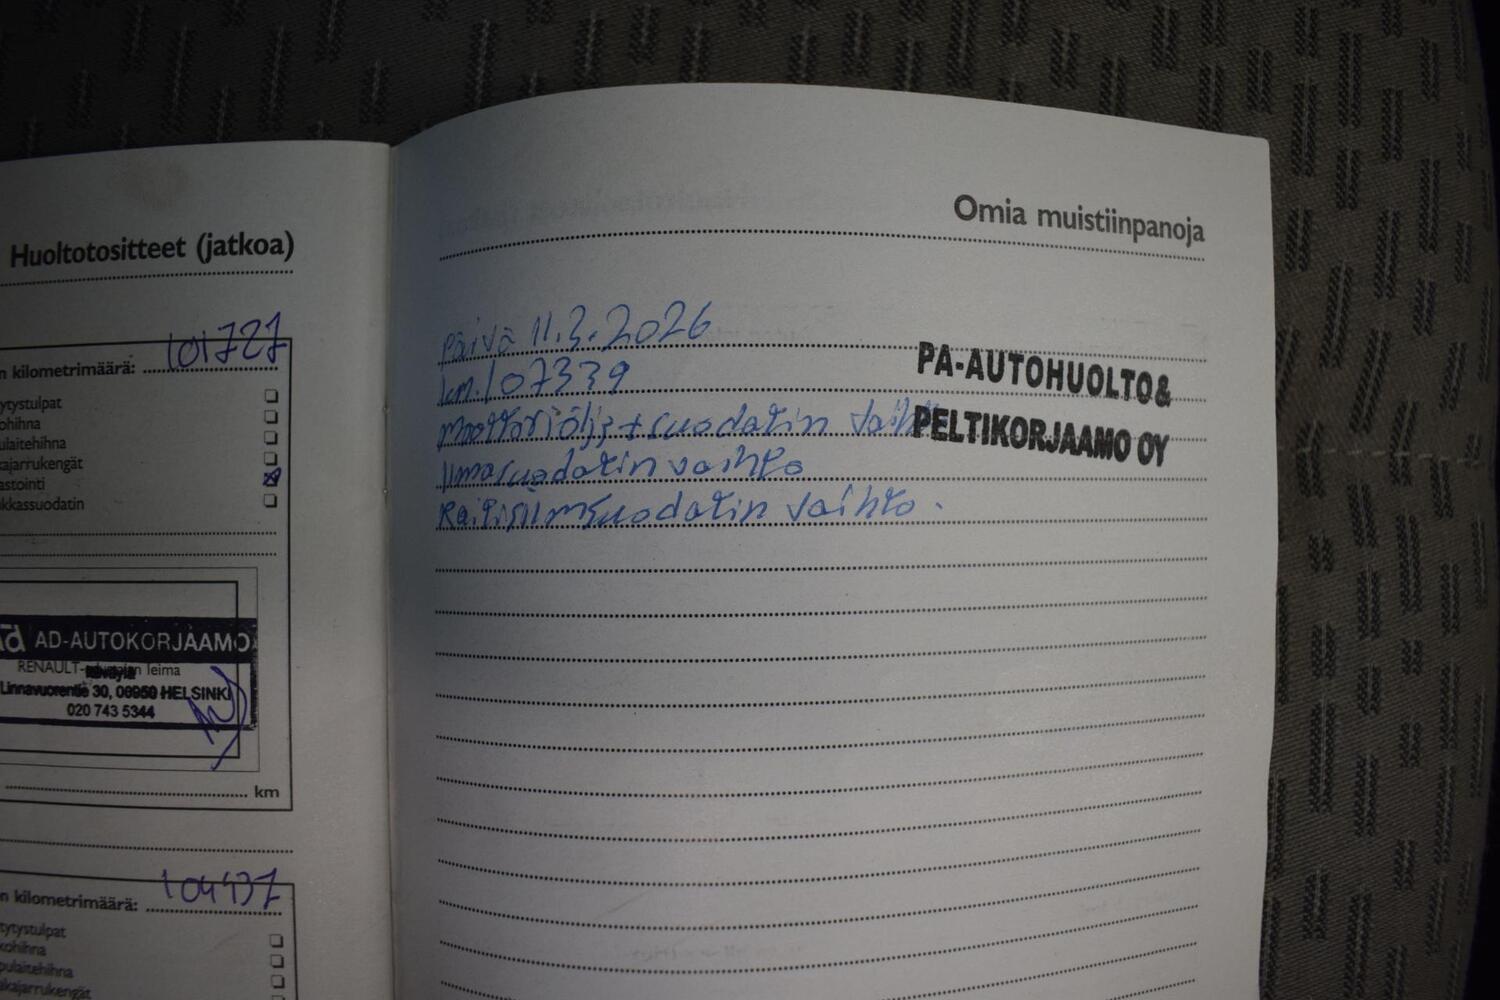 Huoltotositteet (jatkoa)
101727
n kilometrimäärä:
ytystulpat
ohihna
ulaitehihna
kajarrukengät
astointi
kkassuodatin
AD-AUTOKORJAAMO
RENAULT- n leima
Linnavuorentie 30, 00950 HELSINKI
020 743 5344
km
104937
n kilometrimäärä:
tytystulpat
kohihna
pulaitehihna
akajarrukengät
Omia muistiinpanoja
Päivä 11.3.2026
km. 107339
moottoriöljy+suodatin vaih
Ilmasuodatin vaihto
Raitisilmsuodatin vaihto.
PA-AUTOHUOLTO&
PELTIKORJAAMO OY